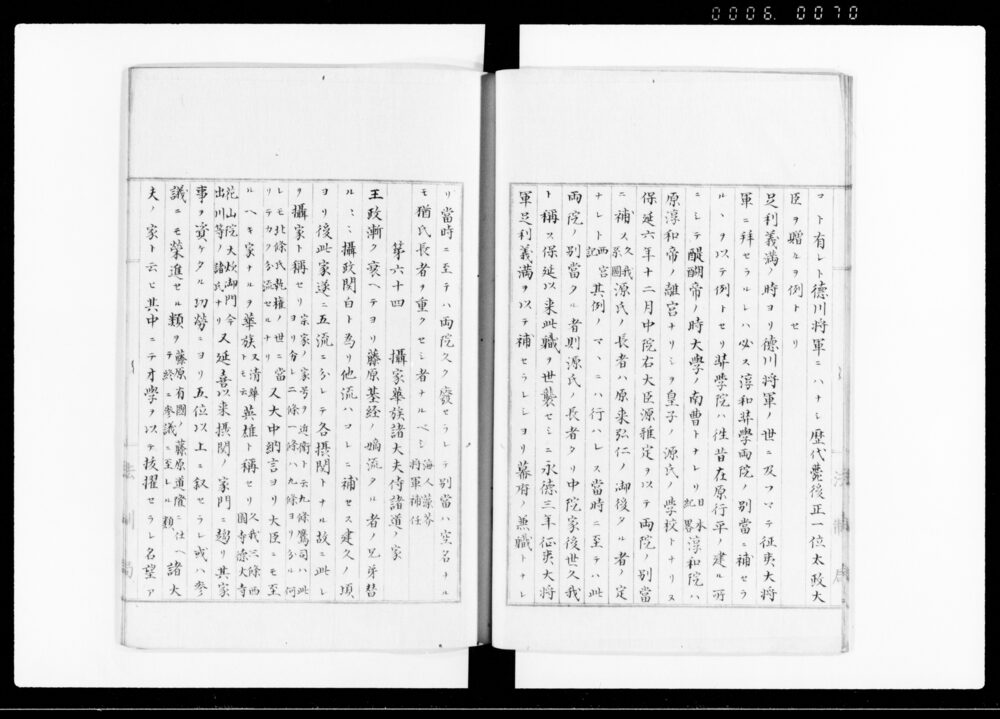 0006. 0070
マト有レト德川將軍ニハナシ歷代薨後正一位太政大
臣ヲ贈ルヲ例トセリ
足利義満ノ時ヨリ德川將軍ノ世ニ及フマテ征夷大將
軍ニ拜セラルレハ必ス淳和弉學両院ノ別當ニ補セラ
ルヽヲ以テ例トセリ弉學院ハ徃昔在原行平ノ建ル所
ニシテ醍醐帝ノ時大學ノ南曹トナレリ日本紀畧淳和院ハ
原淳和帝ノ離宮ナリシヲ皇子ノ源氏ノ學校トナリス
保延六年十二月中院右大臣源雅定ヲ以テ両院ノ別當
ニ補メ久我系圖源氏ノ長者ハ原来弘仁ノ御後タル者ノ定
ナレト西宮記其例ノマヽニハ行ハレス當時ニ至テハ此
両院ノ別當タル者則源氏ノ長者タリ中院家後世久我
ト稱ス保延以来此職ヲ世襲セシニ永德三年征夷大將
軍足利義満ヲ以テ補セラレシヨリ幕府ノ兼職トナレ
リ當時ニ至テハ両院久ク廢セラレテ別當ハ空名ナル
モ猶氏長者ヲ重クセシ者ナルベシ海人藻芥將軍補任
第六十四 攝家華族諸大夫侍諸道ノ家
王政漸ク衰ヘテヨリ藤原基経ノ嫡流タル者ノ兄弟替
ルニ攝政関白ト為リ他流ハコレニ補セス建久ノ頃
ヨリ後此家遂ニ五流ニ分レテ各摂関トナル故ニ此レ
ヲ攝家ト稱セリ宗家ノ家号ヲ近衛ト云九條鷹司ハ此ヨリ分レ二條一條ハ九條ヨリ分ル何
レモ北條氏乾權ノ世ニ當リテカク分流セルナリ又大中納言ヨリ大臣ニモ至
ルヘキ家ナルヲ華族ト云清華英雄ト稱セリ久我三條西園寺德大寺
花山院大炊御門今出川等ノ諸氏ナリ又延喜以来摂関ノ家門ニ趨リ其家
事ヲ資ケタル功勞ニヨリ五位以上ニ叙セラレ或ハ參
議ニモ榮進セル類ヲ藤原有國ノ藤原道隆ニ仕ヘテ終ニ參議ニ至レル類諸大
夫ノ家ト云ヒ其中ニテ才學ヲ以テ拔擢セラレ名望ア
法制局